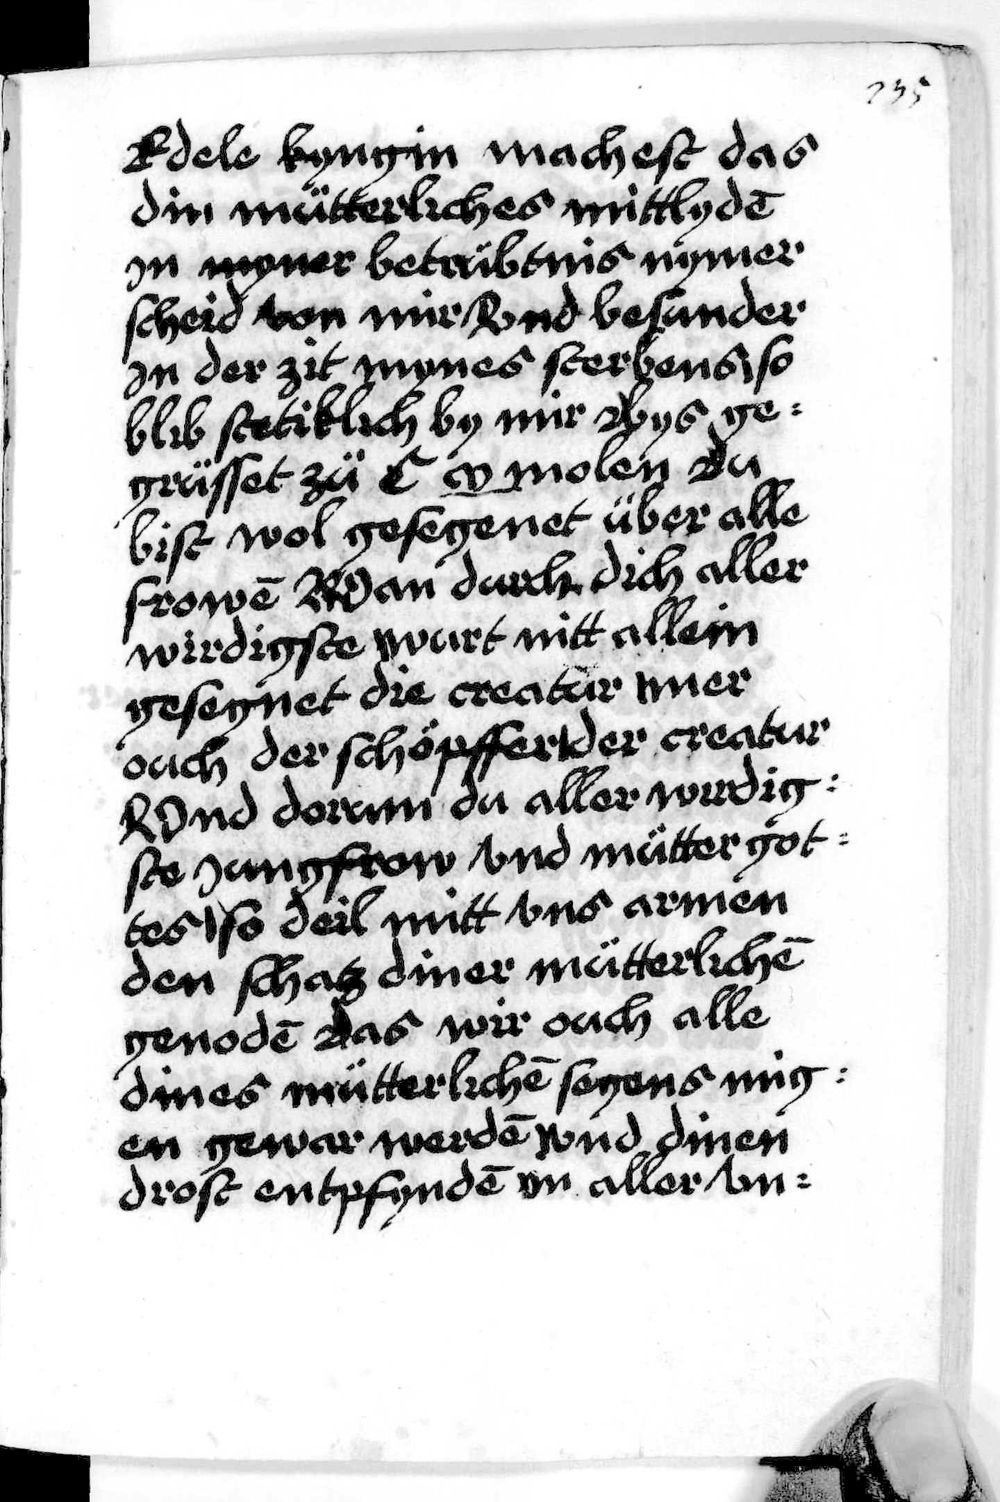 235
Edele kyngin machest das
din mütterliches mittlydē
in myner betrübtnis nymer
scheid von mir Vnd besunder
in der zit mynes sterbens so
blib stetiklich by mir Bys ge⸗
grüsset zü C molen Du
bist wol gesegenet über alle
frowē Wan durch dich aller
wirdigste wurt nitt allein
gesegnet die creatur
ouch der schöpffer der creatur
Vnd dorum du aller wirdig⸗
ste Jungfrow vnd mütter got⸗
tes so deil mitt vns armen
den schatz diner mütterlichē
genodē Das wir ouch alle
dines mütterlichē segens mig⸗
en gewar werdē vnd dinen
drost entpfyndē yn aller vn⸗